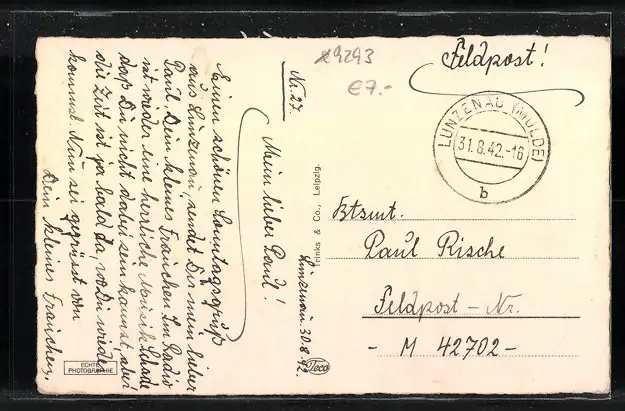 x9293
€7.-
Feldpost!
LUNZENAU (MULDE)
31.8.42.-16
b
Btsmt.
Paul Rische
Feldpost-Nr.
- M 42702 -
Trinks & Co., Leipzig.
Teco
ECHTE
PHOTOGRAPHIE
Nr. 27.
Lunzenau 30.8.42.
Mein lieber Paul!
Einen schönen Sonntagsgruß
aus Lunzenau, sendet Dir mein lieber
Paul, Dein kleines Frauchen. Im Radio
ist wieder eine herrliche Musik. Schade
daß Du nicht dabei sein kannst, aber
die Zeit ist ja bald da, wo Du wieder
kommst. Nun sei gegrüsst von
Dein kleines Frauchen.